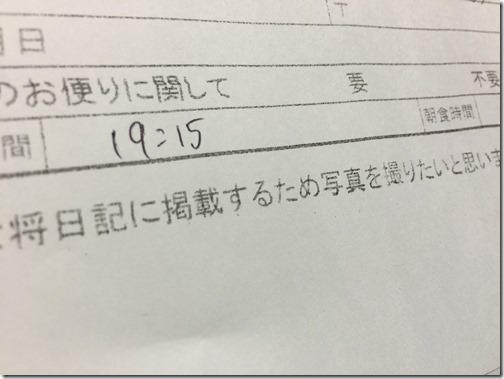 〒
月日
のお便りに関して 要 不要
間 19:15 朝食時間
将日記に掲載するため写真を撮りたいと思いま